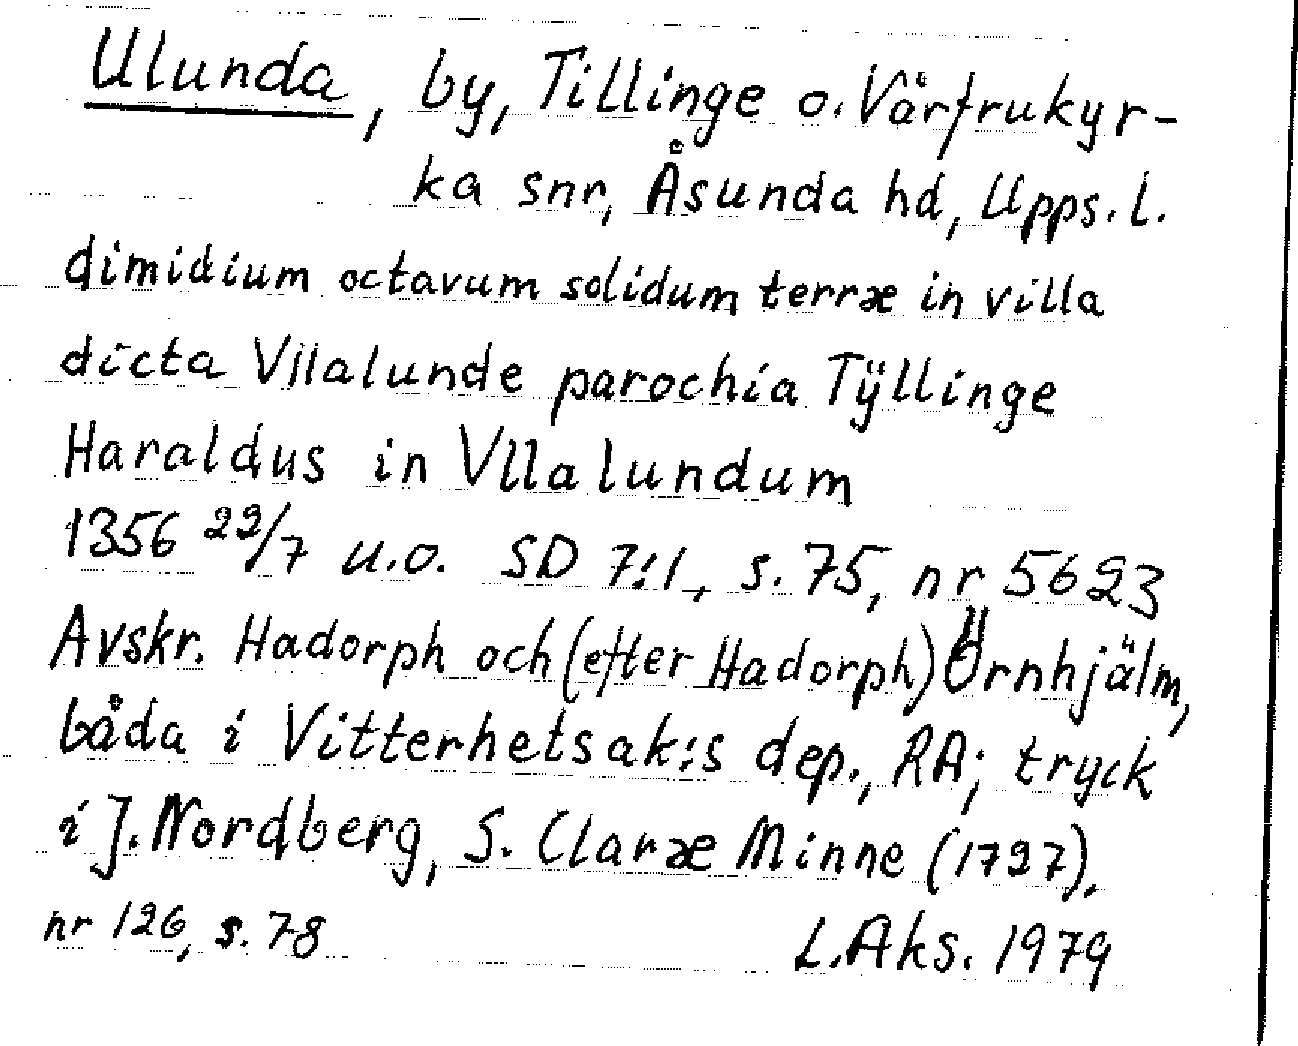 Ulunda, by, Tillinge o. Vårfrukyr-
ka snr, Åsunda hd, Upps. l.
dimidium octavum solidum terræ in villa
dicta Vllalunde parochia Tÿllinge
Haraldus in Vllalundum
1356 22/7 u.o. SD 7:1, s. 75, nr 5623
Avskr. Hadorph och (efter Hadorph) Örnhjälm,
båda i Vitterhetsak:s dep., RA; tryck
i J. Nordberg, S. Claræ Minne (1727),
nr 126, s. 78 L. Aks. 1979